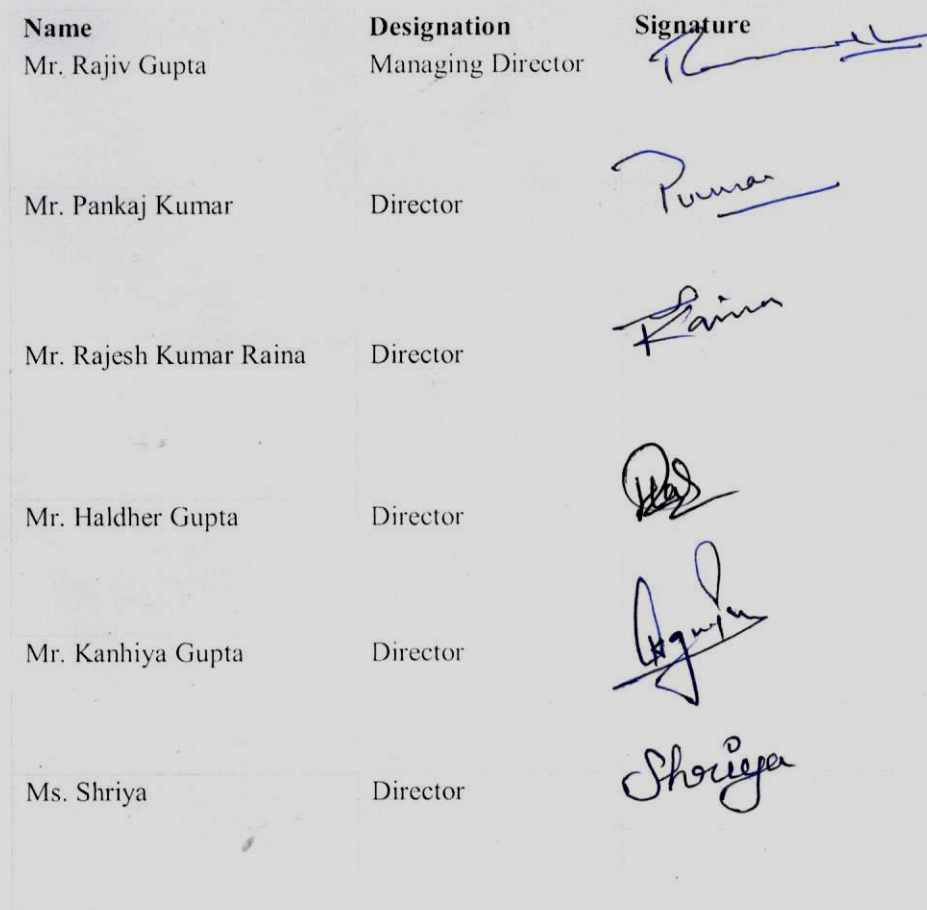 Name Designation Signature
Mr. Rajiv Gupta Managing Director
Mr. Pankaj Kumar Director
Mr. Rajesh Kumar Raina Director Raina
Mr. Haldher Gupta Director
Mr. Kanhiya Gupta Director
Ms. Shriya Director Shriya